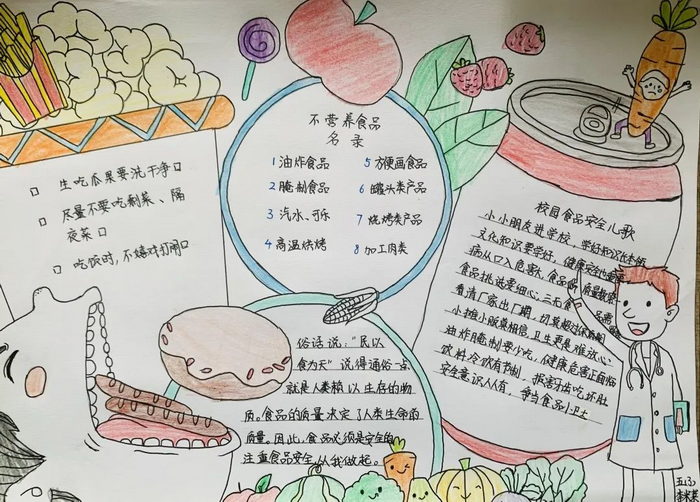 生吃瓜果要洗干净
尽量不要吃剩菜、隔
夜菜
吃饭时,不嬉戏打闹
不营养食品
名录
1 油炸食品
2 腌制食品
3 汽水、可乐
4 高温烘烤
5 方便面食品
6 罐头类产品
7 烧烤类产品
8 加工肉类
俗话说:"民以
食为天"说得通俗一点
就是人类赖以生存的物
质。食品的质量决定了人类生命的
质量。因此,食品必须是安全的
注重食品安全,从我做起。
校园食品安全儿歌
小小朋友进学校,学好知识
文化知识要学好,健康安全也重要
病从口入危害大,食品质量
食品挑选要细心,三无食品
看清厂家出厂期,切莫超过保质期
小摊小贩莫相信,卫生更是难放心
油炸腌制要少吃,健康危害正面临
饮料冷饮有节制,损害牙齿吃坏肚
安全意识人人有,争当食品小卫士